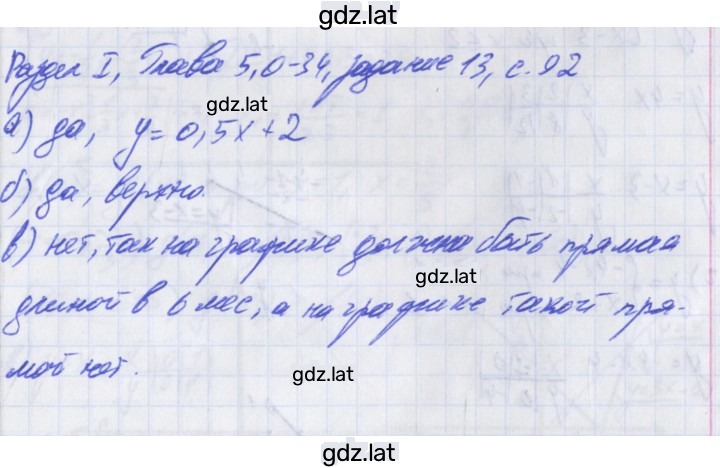 gdz.lat
Раздел I, Глава 5, О-34, задание 13, с. 92
gdz.lat
а) да, y = 0,5x + 2
б) да, верно.
gdz.lat
в) нет, так на графике должна быть прямая
gdz.lat
длиной в 6 мес, а на графике такой пря-
мой нет.
gdz.lat
gdz.lat